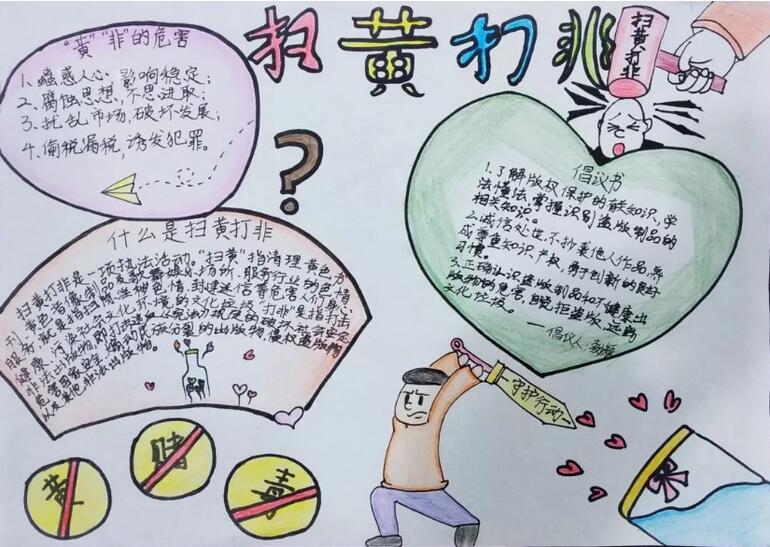 扫黄打非
扫黄打非
"黄""非"的危害
1、蛊惑人心,影响稳定;
2、腐蚀思想,不思进取;
3、扰乱市场,破坏发展;
4、偷税漏税,诱发犯罪。
?
倡议书
1.了解版权保护的有关知识,学
法懂法,掌握识别盗版制品的
相关知识。
2.诚信处世,不抄袭他人作品,养
成尊重知识产权,勇于创新的良好
习惯。
3.正确认识盗版制品和不健康出
版物的危害,自觉拒盗版,远离
文化垃圾。
——倡议人:
什么是扫黄打非
扫黄打非是一项执法活动。"扫黄"指清理黄色书
刊、黄色音像制品及歌舞娱乐场所、服务行业的色情
服务,就是指扫除淫秽色情、封建迷信等危害人们身心
健康、污染社会文化环境的文化垃圾。"打非"是指打击
非法出版物,即打击违反《宪法》规定的破坏社会安定、
危害国家安全、煽动民族分裂的出版物,侵权盗版出版物
以及其他非法出版物。
守护行动
黄
赌
毒